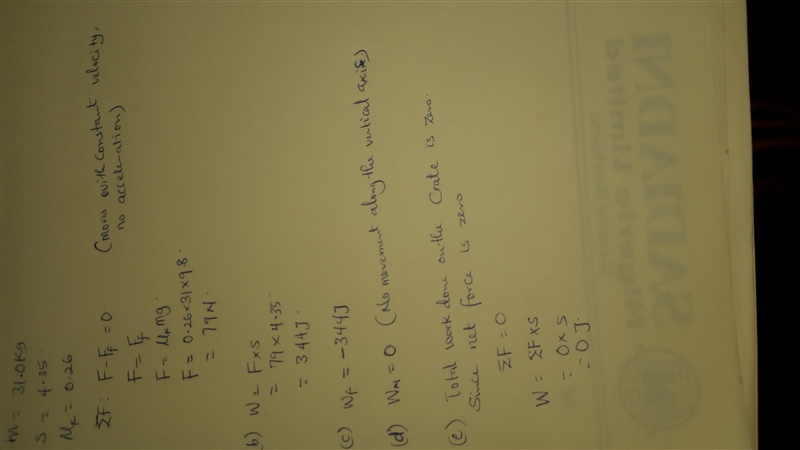 m = 31.0 Kg
S = 4.35
μk = 0.26
ΣF: F - Ff = 0. (moves with constant velocity,
no acceleration).
F = Ff
F = μk mg.
F = 0.26 x 31 x 9.8.
= 79 N.
b) W = F x S
= 79 x 4.35.
= 344 J.
(c) Wf = -344J
(d) WN = 0 (No movement along the vertical axis)
(e) Total work done on the Crate is zero.
Since net force is zero
ΣF = 0
W = ΣF x S
= 0 x S
= 0 J.
Limited